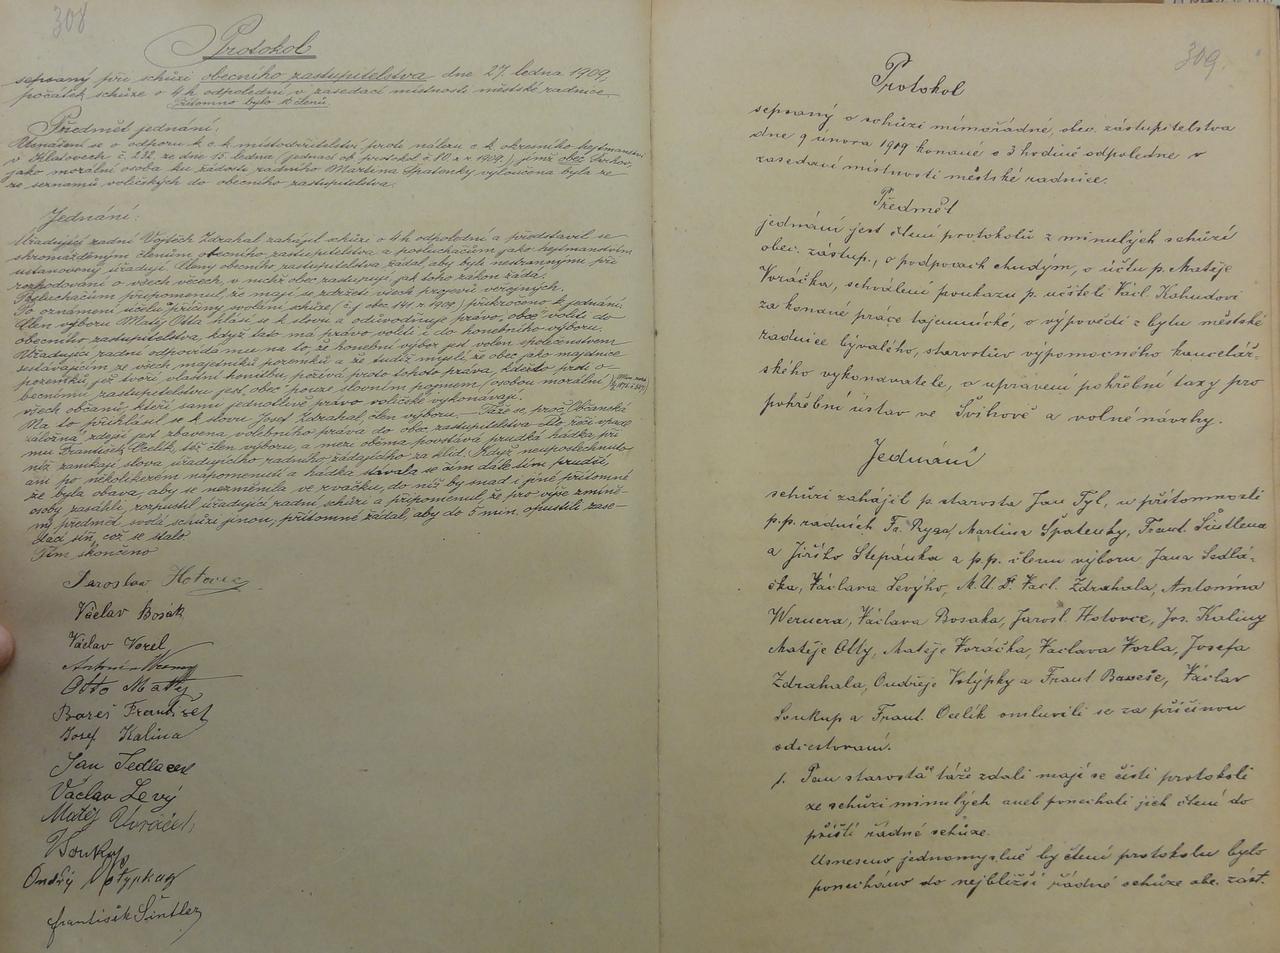 308
Protokol
sepsaný při schůzi obecního zastupitelstva dne 27. ledna 1909,
počátek schůze o 4 h. odpolední v zasedací místnosti městské radnice.
Přítomno bylo členů.
Předmět jednání:
Usnášení se o odporu k c. k. místodržitelství proti nálezu c. k. okresního hejtmanství
v Klatovech č. 232 ze dne 15. ledna (jednací ob. protokol č. 10 z r. 1909.), jímž obec
jako morální osoba ku žádosti radního Martina Špatenky vyloučena byla ze
ze seznamů voličských do obecního zastupitelstva.
Jednání:
Úřadující radní Vojtěch Zdrahal zahájil schůzi o 4 h. odpolední a představil se
shromážděným členům obecního zastupitelstva a posluchačům jako hejtmanstvím
ustanovený úřadující. Členy obecního zastupitelstva žádal aby byli nestrannými při
rozhodování o všech věcech, v nichž obec zastupují, jak toho zákon žádá.
Posluchačům připomenul, že mají se zdržeti všech projevů veřejných.
Po oznámení účelu a příčiny svolání schůze (č. j. obec. 141 z r. 1909) přikročeno k jednání.
Člen výboru Matěj Otta hlásí se k slovu a odůvodňuje právo, obce voliti do
obecního zastupitelstva, když tato má právo voliti i do honebního výboru.
Úřadující radní odpovídá mu na to, že honební výbor jest volen společenstvem
sestávajícím ze všech majetníků pozemků a že tudíž myslí že obec jako majetnice
pozemků, jež tvoří vlastní honitbu, požívá proto tohoto práva, kdežto proti o-
becnímu zastupitelstvu jest „obec" pouze slovním pojmem (osobou morální)
všech občanů, kteří sami jednotlivě právo voličské vykonávají.
Na to přihlásil se k slovu Josef Zdrahal, člen výboru. Táže se, proč Občanská
záložna zdejší jest zbavena volebního práva do obec. zastupitelstva. Do řeči vpadl
mu František Ocelík, též člen výboru, a mezi oběma povstává prudká hádka při
níž zanikají slova úřadujícího radního žádajícího za klid. Když neuposlechnuto
ani po několikerém napomenutí a hádka stávala se čím dále tím prudší,
že byla obava, aby se nezměnila ve rvačku, do níž by snad i jiné přítomné
osoby zasáhly, rozpustil úřadující radní schůzi a připomenul, že pro výše zmíně-
ný předmět svolá schůzi jinou; přítomné žádal, aby do 5 min. opustili zase-
dací síň, což se stalo.
Tím skončeno
Jaroslav Hotovec
Václav Bosák
Václav Vorel
Antonín
Otto Matěj
Bareš František
Josef Kalina
Jan Sedlaček
Václav Levý
Matěj Voráček
Soukup
Ondřej Votýpka
František Šintler
309.
Protokol
sepsaný o schůzi mimořádné, obec. zástupitelstva
dne 9 února 1909 konané o 3 hodině odpoledne v
zasedací místnosti městské radnice.
Předmět
jednání jest čtení protokolů z minulých schůzí
obec. zástup., o podporách chudým, o účtu p. Matěje
Voráčka, schválení poukazu p. učiteli Václ. Kahudovi
za konané práce tajemnické, o výpovědi z bytu městské
radnice bývalého, starostův výpomocného kancelář-
ského vykonavatele, o upravení pohřební taxy pro
pohřební ústav ve Švihově a volné návrhy.
Jednání
schůzi zahájil p. starosta Jan Tyl, u přítomnosti
p.p. radních Fr. Ryga, Martina Špatenky, Frant. Šintlera
a Jiřího Štěpánka a p.p. členu výboru Jana Sedlá-
čka, Václava Levýho, M. U. Dr. Vacl. Zdrahala, Antonína
Wernera, Václava Bosaka, Jarosl. Hotovce, Jos. Kaliny
Matěje Otty, Matěje Voráčka, Václava Vorla, Josefa
Zdrahala, Ondřeje Votýpky a Frant Bareše, Václav
Soukup a Frant. Ocelík omluvili se za příčinou
odcestovaní.
1. Pan starosta táže zdali mají se čísti protokoli
ze schůzi minulých aneb ponechati jich čtení do
příští řádné schůze.
Usneseno jednomyslně by čtení protokolu bylo
ponecháno do nejbližší řádné schůze obc. zást.